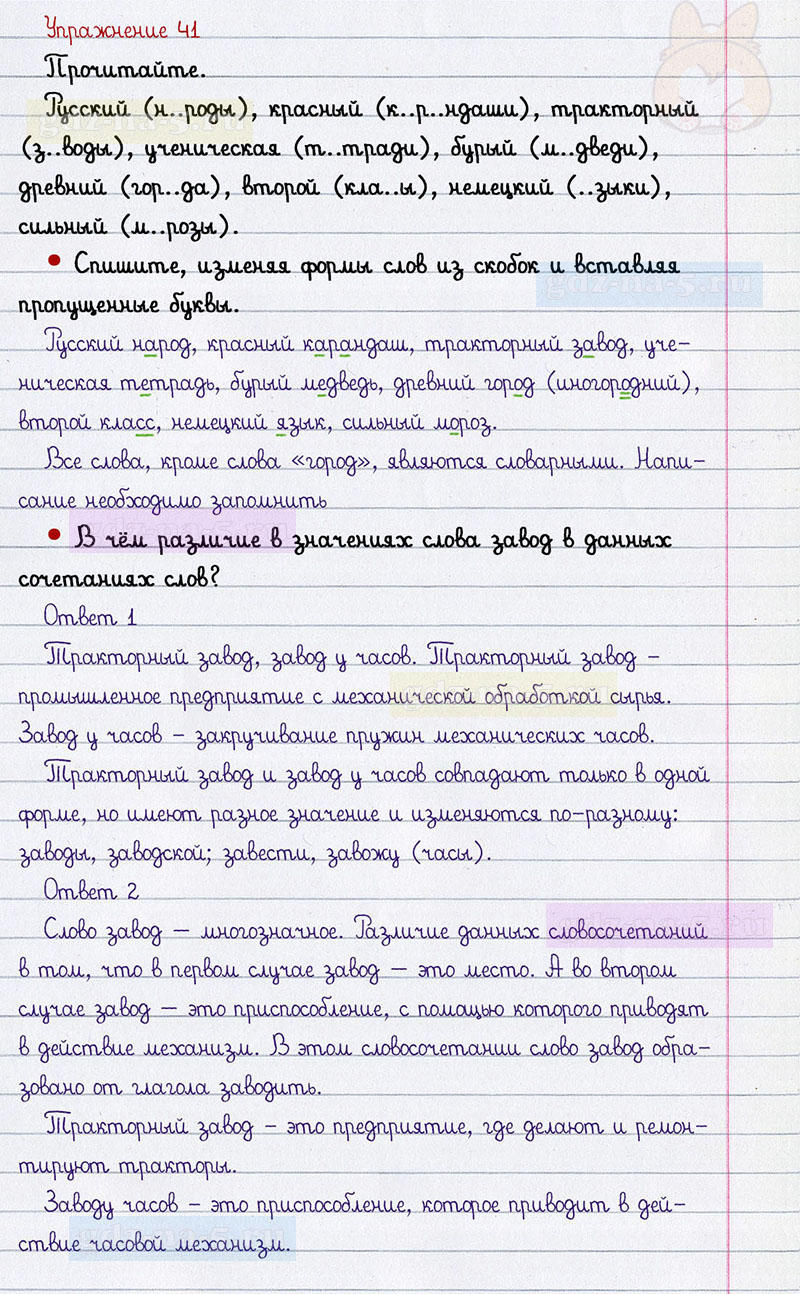 Упражнение 41
Прочитайте.
Русский (н..роды), красный (к..р..ндаши), тракторный
(з..воды), ученическая (т..тради), бурый (м..дведи),
древний (гор..да), второй (кла..ы), немецкий (..зыки),
сильный (м..розы).
• Спишите, изменяя формы слов из скобок и вставляя
пропущенные буквы.
Русский народ, красный карандаш, тракторный завод, уче-
ническая тетрадь, бурый медведь, древний город (иногородний),
второй класс, немецкий язык, сильный мороз.
Все слова, кроме слова «город», являются словарными. Напи-
сание необходимо запомнить
• В чём различие в значениях слова завод в данных
сочетаниях слов?
Ответ 1
Тракторный завод, завод у часов. Тракторный завод –
промышленное предприятие с механической обработкой сырья.
Завод у часов – закручивание пружин механических часов.
Тракторный завод и завод у часов совпадают только в одной
форме, но имеют разное значение и изменяются по-разному:
заводы, заводской; завести, завожу (часы).
Ответ 2
Слово завод — многозначное. Различие данных словосочетаний
в том, что в первом случае завод — это место. А во втором
случае завод — это приспособление, с помощью которого приводят
в действие механизм. В этом словосочетании слово завод обра-
зовано от глагола заводить.
Тракторный завод – это предприятие, где делают и ремон-
тируют тракторы.
Заводу часов – это приспособление, которое приводит в дей-
ствие часовой механизм.
gdz-na-5.ru
gdz-na-5.ru
gdz-na-5.ru
gdz-na-5.ru
gdz-na-5.ru
gdz-na-5.ru